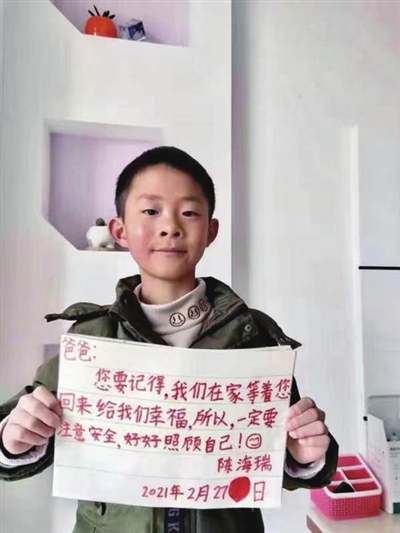 爸爸:
您要记得,我们在家等着您
回来给我们幸福,所以,一定要
注意安全,好好照顾自己!
陈海瑞
2021年2月27日